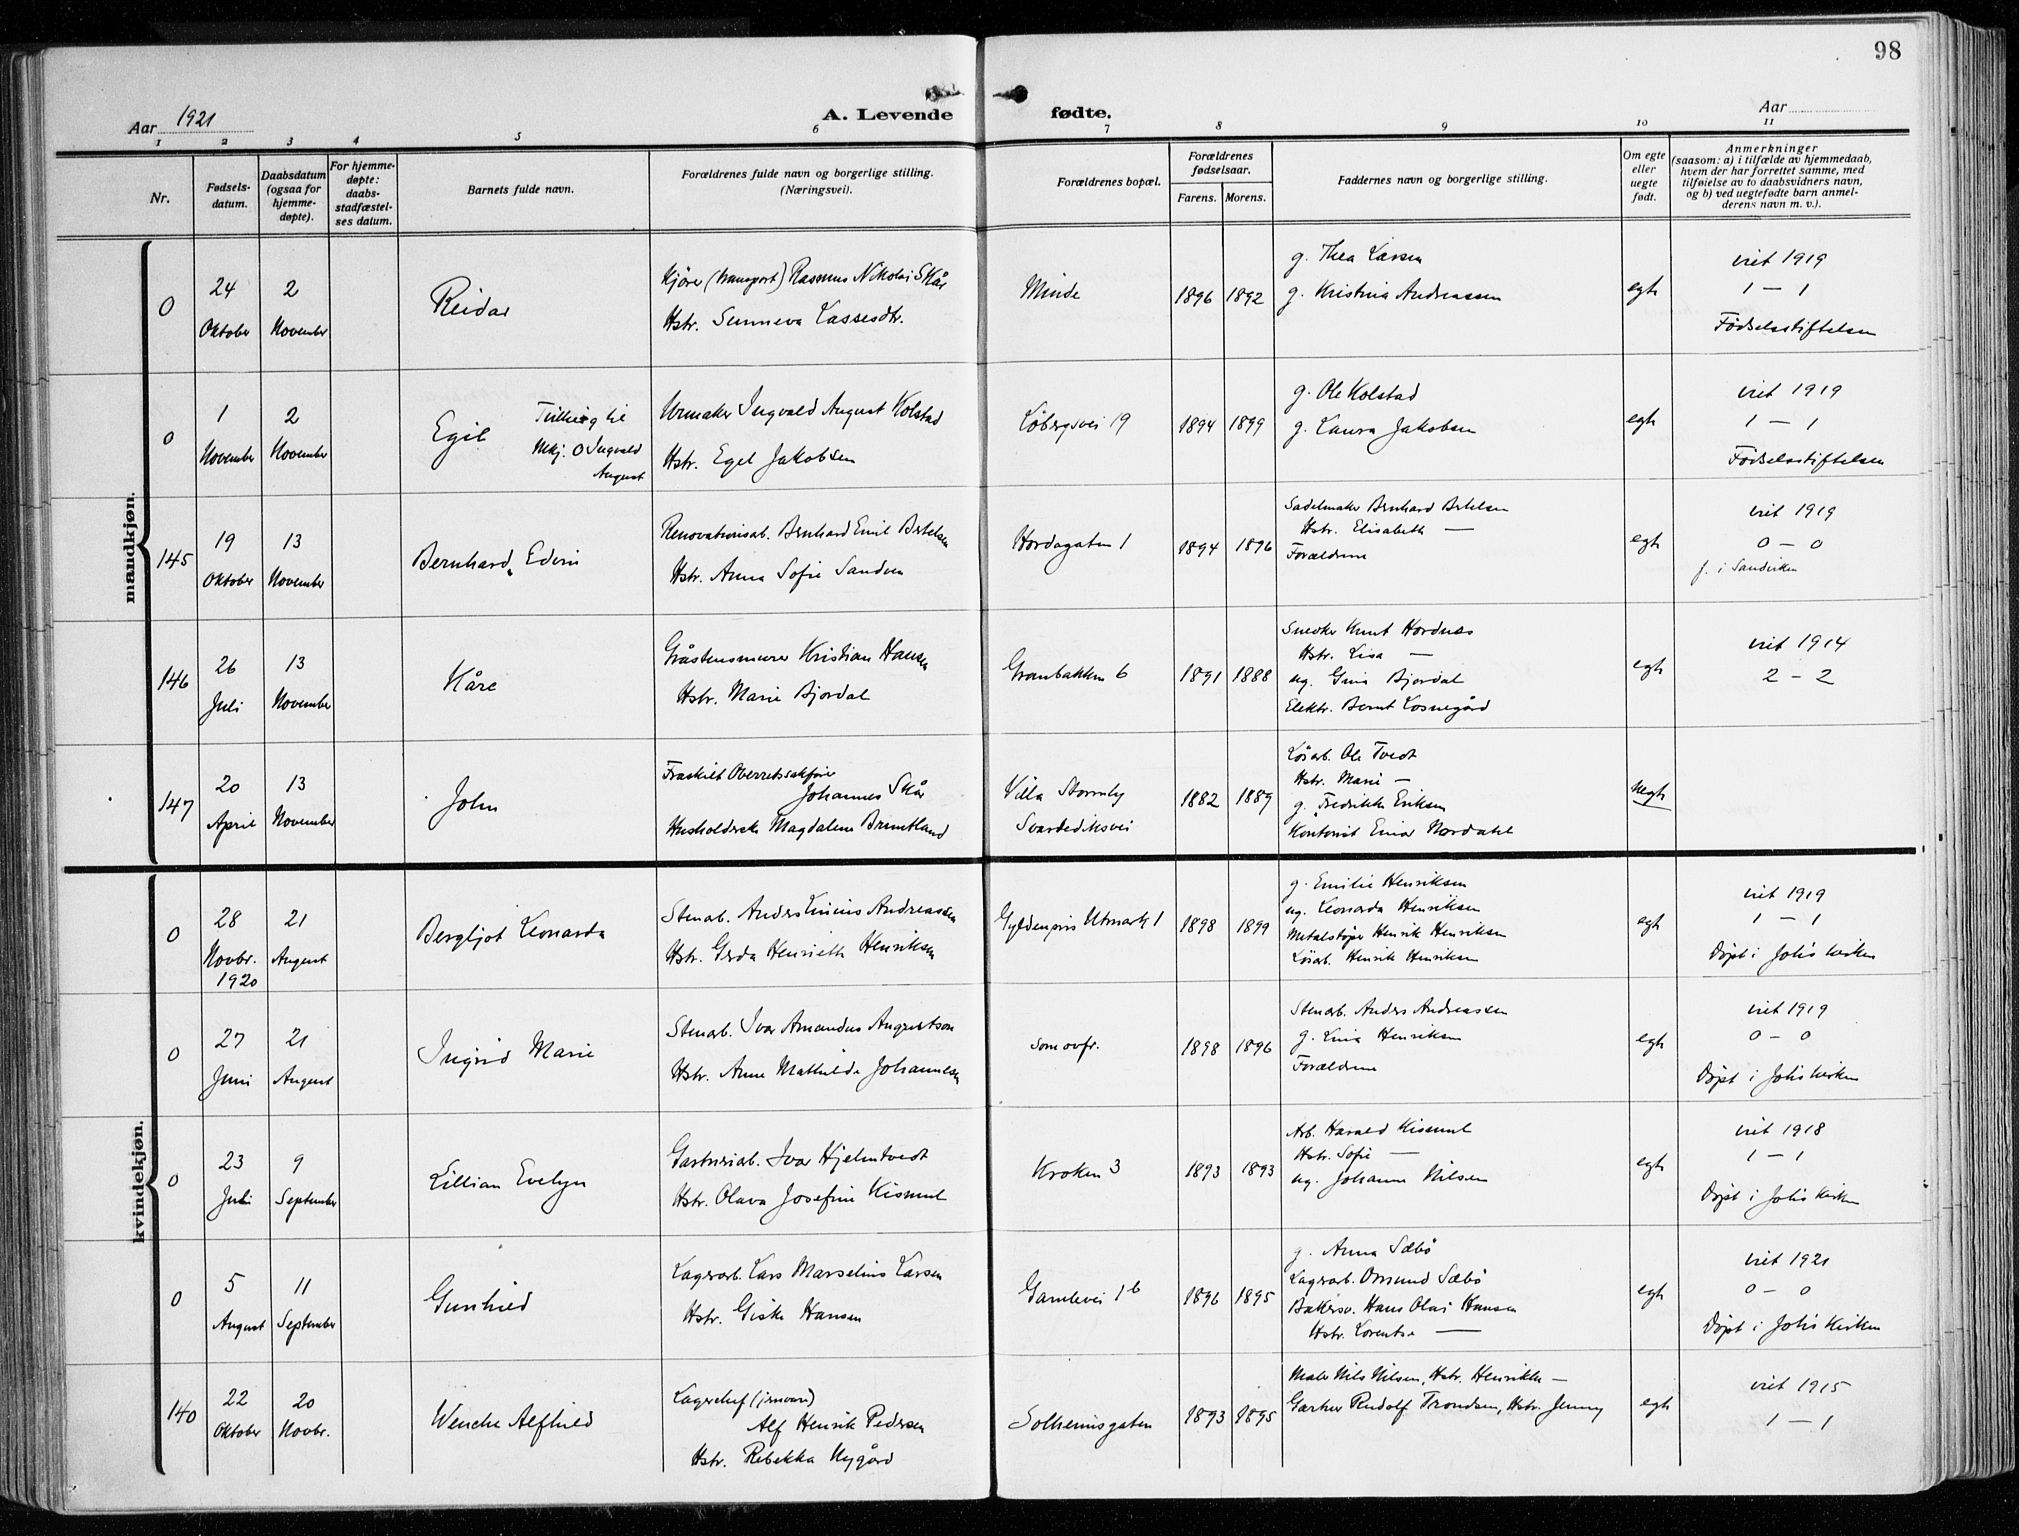 98
Aar 1921
A. Levende fødte.
Aar
1 2 3 4 5 6 7 8 9 10 11
Nr.
Fødsels-
datum.
Daabsdatum
(ogsaa for
hjemme-
døpte).
For hjemme-
døpte:
daabs-
stadfæstel-
ses datum.
Barnets fulde navn.
Forældrenes fulde navn og borgerlige stilling.
(Næringsvei).
Forældrenes bopæl.
Forældrenes
fødselsaar.
Farens. Morens.
Faddernes navn og borgerlige stilling.
Om egte
eller
uegte
født.
Anmerkninger
(saasom: a) i tilfælde av hjemmedaab,
hvem der har forrettet samme, med
tilføielse av to daabsvidners navn,
og b) ved uegtefødte barn anmel-
derens navn m. v.).
mandkjøn.
0
24
Oktober
2
November
Reidar
Kjører (transport) Rasmus Nikolai Skår
Hstr. Sunneva Lassesdtr.
Minde
1896 1892
g. Thea Larsen
g. Kristina Andreassen
egte
viet 1919
1 – 1
Fødselsstiftelsen
0
1
November
2
November
Egil
til
Ingvald
August
Urmaker Ingvald August Kolstad
Hstr. Egel Jakobsen
Løbergsvei 19
1894 1899
g. Ole Kolstad
g. Laura Jakobsen
egte
viet 1919
1 – 1
Fødselsstiftelsen
145
19
Oktober
13
November
Bernhard Edvin
Renovationsarb. Bernhard Emil Bertelsen
Hstr. Anna Sofie Sandven
Hordagaten 1
1894 1896
Sadelmaker Bernhard Bertelsen
Hstr. Elisabeth —
Forældrene
egte
viet 1919
0 – 0
f. i Sandviken
146
26
Juli
13
November
Kåre
Gråstensmurer Kristian Hansen
Hstr. Marie Bjordal
Granbakken 6
1891 1888
Snedker Knut Hordnes
Hstr. Lisa —
ug. Gina Bjordal
Elektr. Bernt Losnegård
egte
viet 1914
2 – 2
147
20
April
13
November
John
Fraskilt Overretssakfører
Johannes Skår
Husholderske Magdalene Brimtland
Villa Stormly
Svartediksvei
1882 1889
Løsarb. Ole Tvedt
Hstr. Marie —
g. Fredrikke Eriksen
Kontorist Einar Nordahl
uegte
kvindekjøn.
0
28
Novbr.
1920
21
August
Bergljot Leonarda
Stenarb. Anders Linius Andreassen
Hstr. Gerda Henriette Henriksen
Gyldenpris Utmark 1
1898 1899
g. Emilie Henriksen
ug. Leonarda Henriksen
Metalstøper Henrik Henriksen
Løsarb. Henrik Henriksen
egte
viet 1919
1 – 1
Døpt i Johs kirken
0
27
Juni
21
August
Ingrid Marie
Stenarb. Ivar Amandus Augustson
Hstr. Anne Mathilde Johannesen
som ovfr.
1898 1896
Stenarb. Anders Andreassen
g. Lina Henriksen
Forældrene
egte
viet 1919
0 – 0
Døpt i Johs kirken
0
23
Juli
9
September
Lillian Evelyn
Ivar Hjelmtvedt
Hstr. Olava Josefine Kismul
Kroken 3
1893 1893
Arb. Harald Kismul
Hstr. Sofie —
ug. Johanne Nilsen
egte
viet 1918
1 – 1
Døpt i Johs kirken
0
5
August
11
September
Gunhild
Lagerarb. Lars Marselius Larsen
Hstr. Giske Hansen
Gamlevei 1b
1896 1895
g. Anna Sæbø
Lagerarb. Omund Sæbø
Bakersv. Hans Olai Hansen
Hstr. Lorentse —
egte
viet 1921
0 – 0
Døpt i Johs kirken
140
22
Oktober
20
Novbr.
Wenche Alfhild
Lagerchef (jernvare)
Alf Henrik Pedersen
Hstr. Rebekka Nygård
Solheimsgaten
1893 1895
Maler Nils Nilsen, Hstr. Henrikke —
Gartner Rudolf Trondsen, Hstr. Jenny
egte
viet 1915
1 – 1